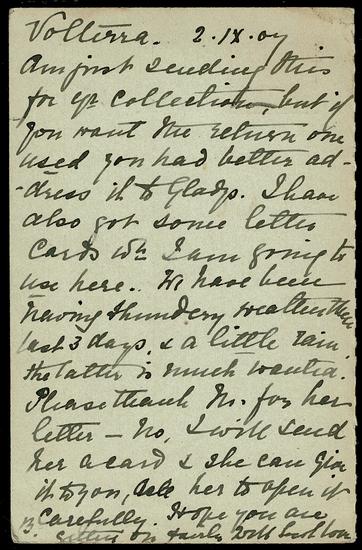 Volterra. 2.IX.07
Am just sending this
for yr collection, but if
you want the return one
used you had better ad-
-dress it to Gladys. I have
also got some letter
cards wh I am going to
use here. We have been
having thundery weather these
last 3 days, & a little rain.
The latter is much wanted.
Please thank M. for her
letter – No, I will send
her a card & she can give
it to you, tell her to open it
carefully. Hope you are
getting on fairly well